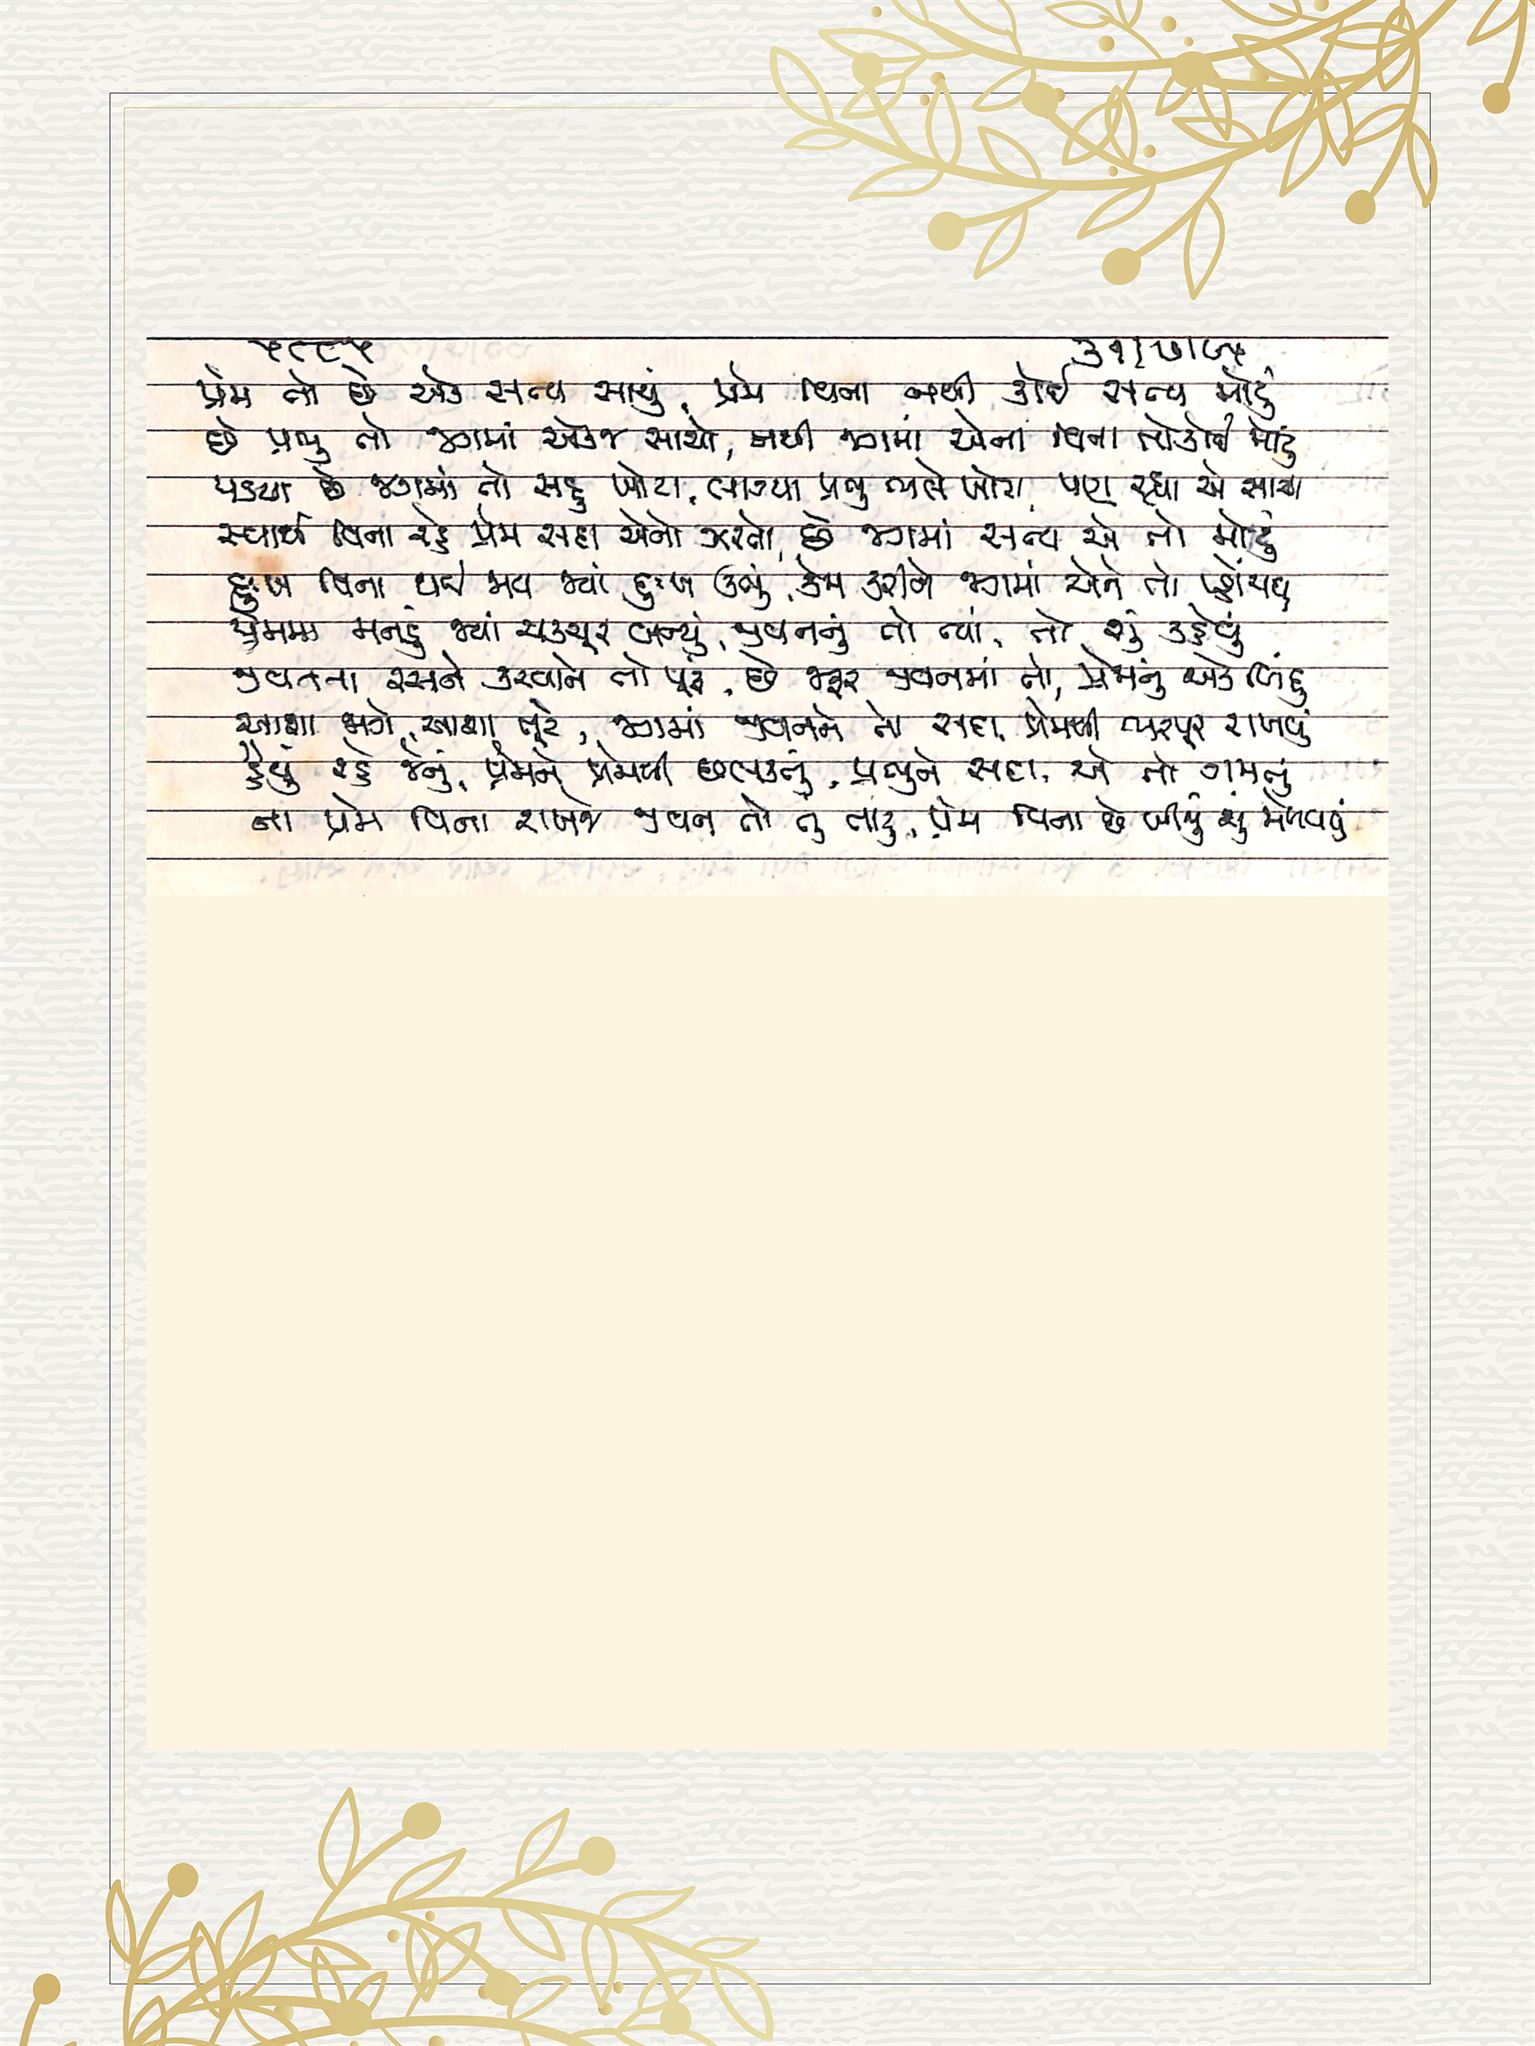 પ્રેમ તો છે એક સત્ય સાચું, પ્રેમ વિના નથી કોઈ સત્ય મોટું
છે પ્રભુ તો જગમાં એકજ સાચો, નથી જગમાં એના વિના તો કોઈ મોટું
પડયા છે જગમાં તો સહુ ખોટા, લાગ્યા પ્રભુ ભલે ખોટા પણ રહ્યા એ સાચા
સ્વાર્થ વિના રહે પ્રેમ સદા એનો ઝરતો, છે જગમાં સત્ય એ તો મોટું
દુઃખ વિના થઈ મન જ્યાં દુઃખ ઉભું, કેમ કરીને જગમાં એને તો
પ્રેમમાં મનડું જ્યાં ચકચૂર બન્યું, જીવનનું તો ત્યાં, તો શું કહેવું
જીવનના રસને કરવાને તો પૂરું, છે જરૂર જીવનમાં તો, પ્રેમનું એક બિંદુ
આશા જાગે, આશા તૂટે, જગમાં જીવનને તો સદા પ્રેમથી ભરપૂર રાખવું
હૈયું રહે જેનું, પ્રેમને પ્રેમથી છલકતું, પ્રભુને સદા, એ તો ગમતું
ના પ્રેમ વિના રાખજે જીવન તો તું તારું, પ્રેમ વિના છે બીજું શું મેળવવું